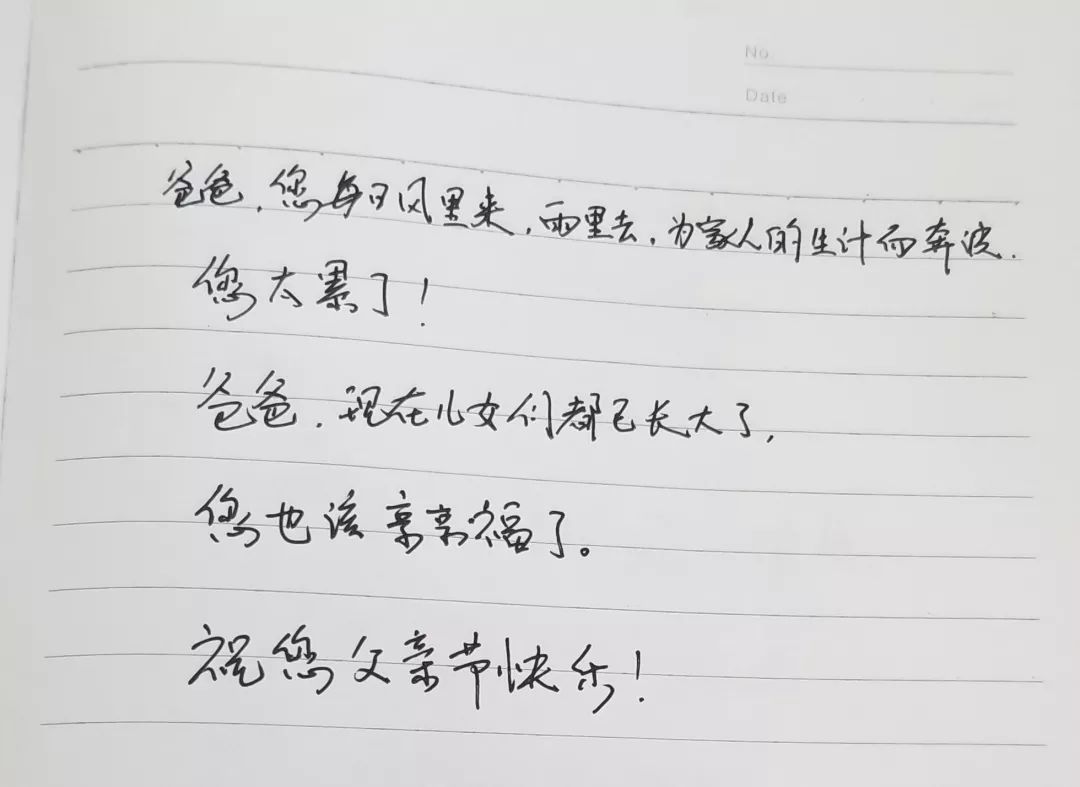 No
Date
爸爸，您每日风里来，雨里去，为家人的生计而奔波.
您太累了！
爸爸，现在儿女们都已长大了，
您也该享享福了。
祝您父亲节快乐！